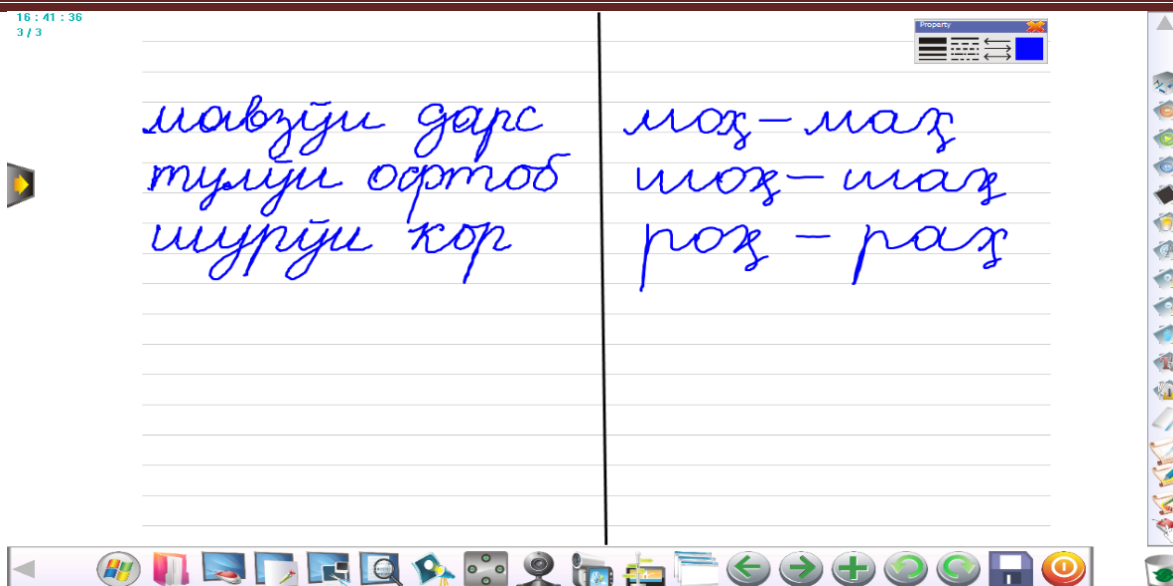 16 : 41 : 36
3 / 3
Property
мавзӯи дарс
тулӯи офтоб
шурӯи кор
моҳ – маҳ
шоҳ – шаҳ
роҳ – раҳ